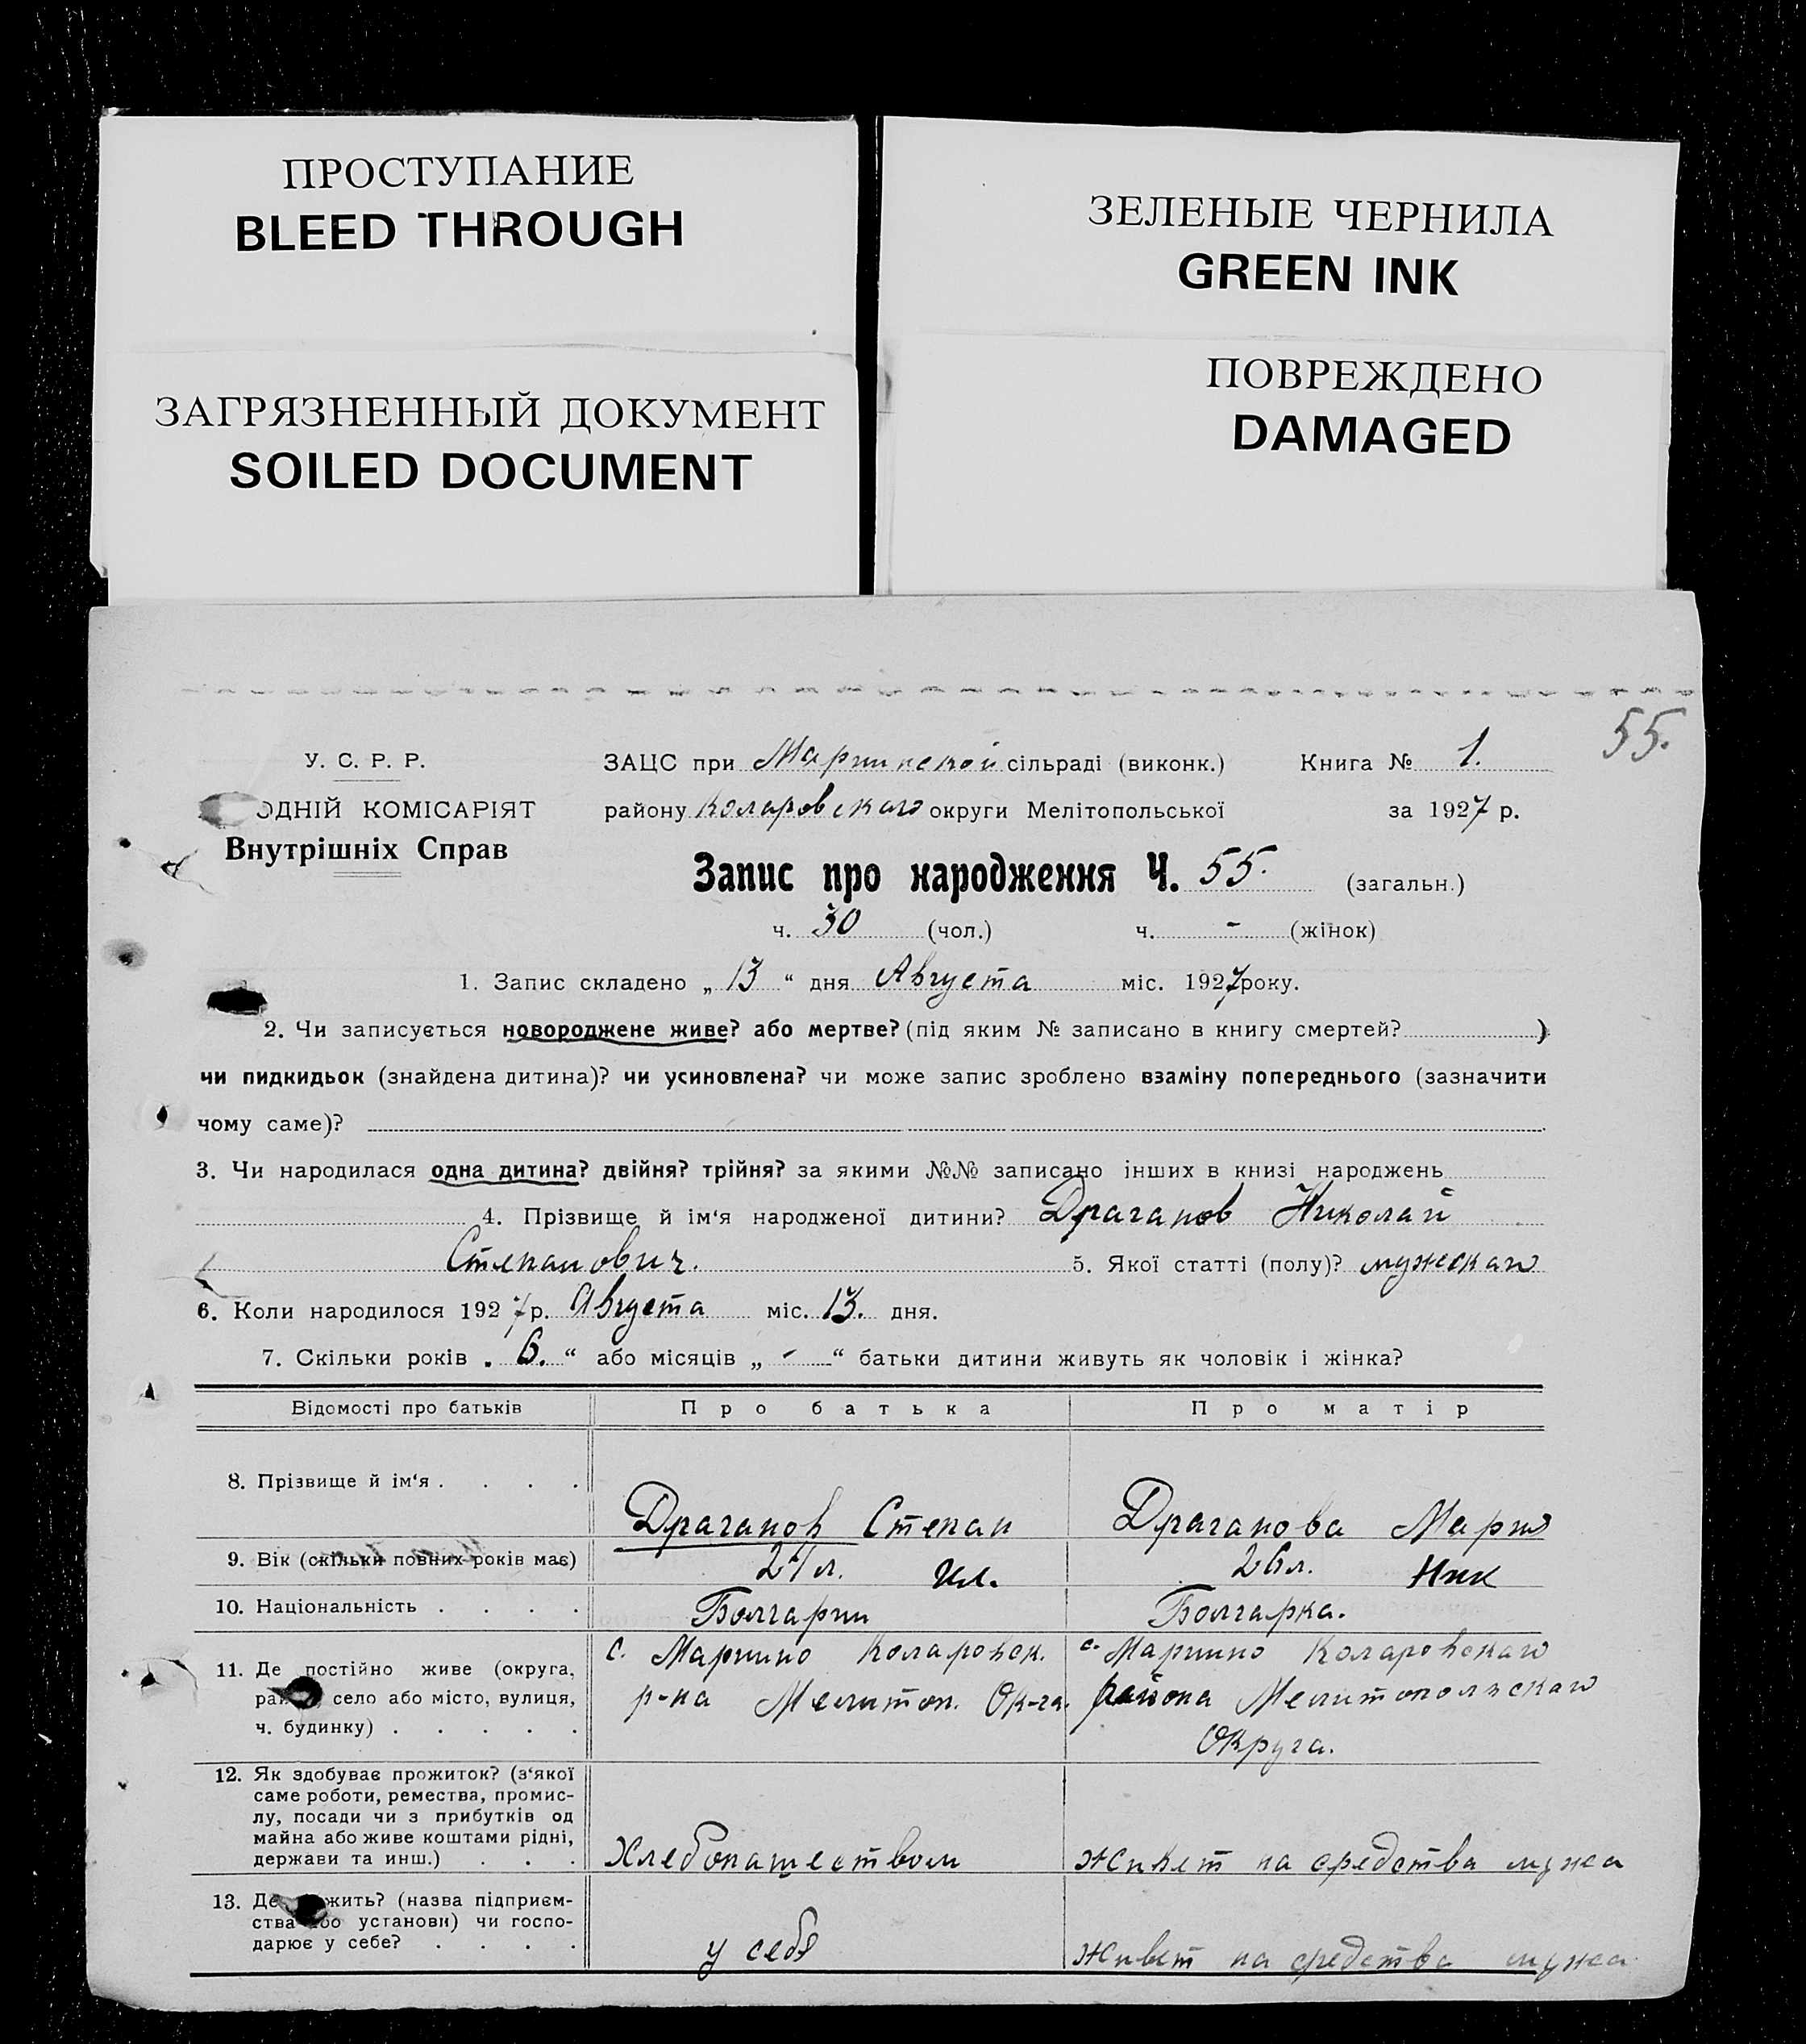 ПРОСТУПАНИЕ
BLEED THROUGH
ЗЕЛЕНЫЕ ЧЕРНИЛА
GREEN INK
ЗАГРЯЗНЕННЫЙ ДОКУМЕНТ
SOILED DOCUMENT
ПОВРЕЖДЕНО
DAMAGED
55.
У. С. Р. Р.
ОДНІЙ КОМІСАРІЯТ
Внутрішніх Справ
ЗАЦС при Мариинской сільраді (виконк.) Книга № 1.
району Коларовскаго округи Мелітопольської за 1927 р.
Запис про народження Ч. 55. (загальн.)
ч. 30 (чол.) ч. - (жінок)
1. Запис складено „ 13 “ дня Августа міс. 1927 року.
2. Чи записується новороджене живе? або мертве? (під яким № записано в книгу смертей? )
чи пидкидьок (знайдена дитина)? чи усиновлена? чи може запис зроблено взаміну попереднього (зазначити
чому саме)?
3. Чи народилася одна дитина? двійня? трійня? за якими №№ записано інших в книзі народжень
4. Прізвище й ім‘я народженої дитини? Драганов Николай
Степанович. 5. Якої статті (полу)? мужскаго
6. Коли народилося 1927 р. Августа міс. 13. дня.
7. Скільки років „ 6. “ або місяців „ - “ батьки дитини живуть як чоловік і жінка?
Відомості про батьків Про батька Про матір
8. Прізвище й ім‘я . . . . Драганов Степан Драганова Мария
9. Вік (скільки повних років має) л. Ил. 26 л. Ник
10. Національність . . . . Болгарин Болгарка.
11. Де постійно живе (округа, с. Мариино Коларовск. с. Мариино Коларовскаго
село або місто, вулиця, р-на Мелитоп. Ок-га. района Мелитопольскаго
ч. будинку) . . . . . Округа.
12. Як здобуває прожиток? (з‘якої
саме роботи, ремества, промис-
лу, посади чи з прибутків од
майна або живе коштами рідні,
держави та инш.) . . . Хлебопашеством Живет на средства мужа
13. Де жить? (назва підприєм-
ства або установи) чи госпо-
дарює у себе? . . . . у себя Живет на средства мужа